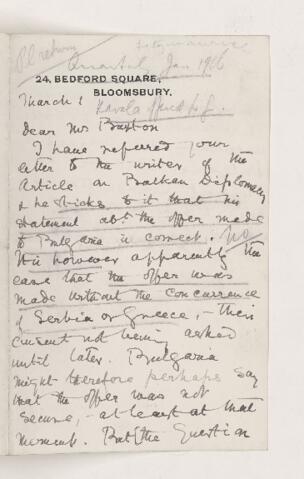 Pl return
Fitzmaurice
Quarterly Jan 1916
24, BEDFORD SQUARE,
BLOOMSBURY.
March 1
Kavala offered to G.
Dear Mr Buxton
I have referred your
letter to the writer of the
Article on Balkan Diplomacy
& he sticks to it that his
statement abt the offer made
to Bulgaria is correct. No
It is however apparently the
case that the offer was
made without the concurrence
of Serbia or Greece, – their
consent not being asked
until later. Bulgaria
might therefore perhaps say
that the offer was not
secure, – at least at that
moment. But (the question